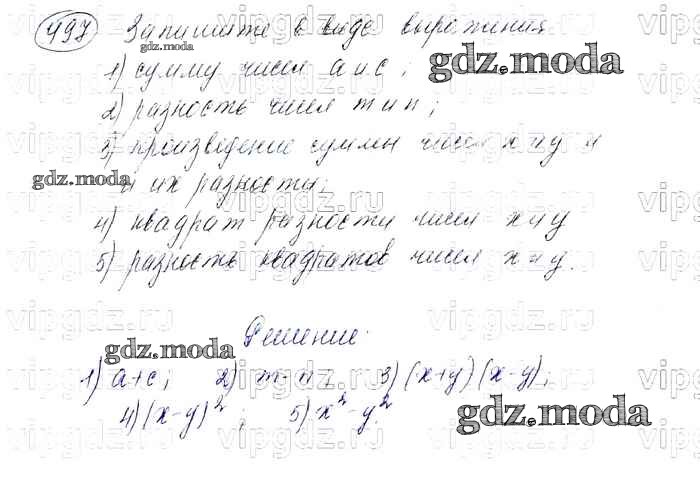 497 Запишите в виде выражения
gdz.moda
1) сумму чисел a и c;
gdz.moda
2) разность чисел m и n;
3) произведение суммы чисел x и y и
gdz.moda
их разности;
4) квадрат разности чисел x и y
5) разность квадратов чисел x и y.
Решение.
gdz.moda
1) a+c; 2) m-n; 3) (x+y)(x-y);
4) (x-y)²; 5) x²-y².
gdz.moda
vipgdz.ru